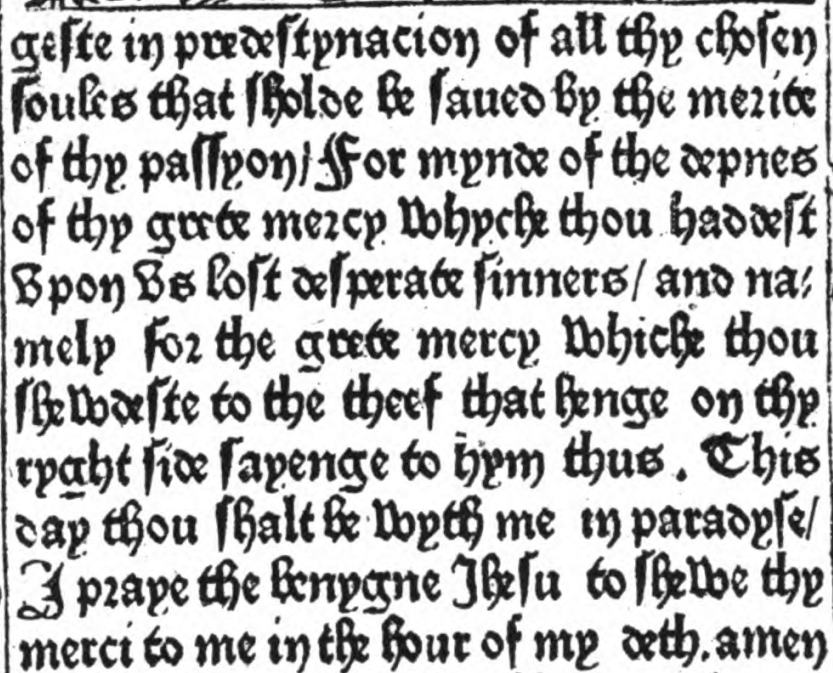 geſte in predeſtynacion of all thy choſen
ſoules that ſholde be ſaued by the merite
of thy paſſyon/ For mynde of the depnes
of thy grete mercy whyche thou haddeſt
vpon vs loſt deſperate ſinners/ and na⸗
mely for the grete mercy whiche thou
ſhewdeſte to the theef that henge on thy
ryght ſide ſayenge to hym thus. This
day thou ſhalt be wyth me in paradyſe/
I praye the benygne Jheſu to ſhewe thy
merci to me in the hour of my deth. amen